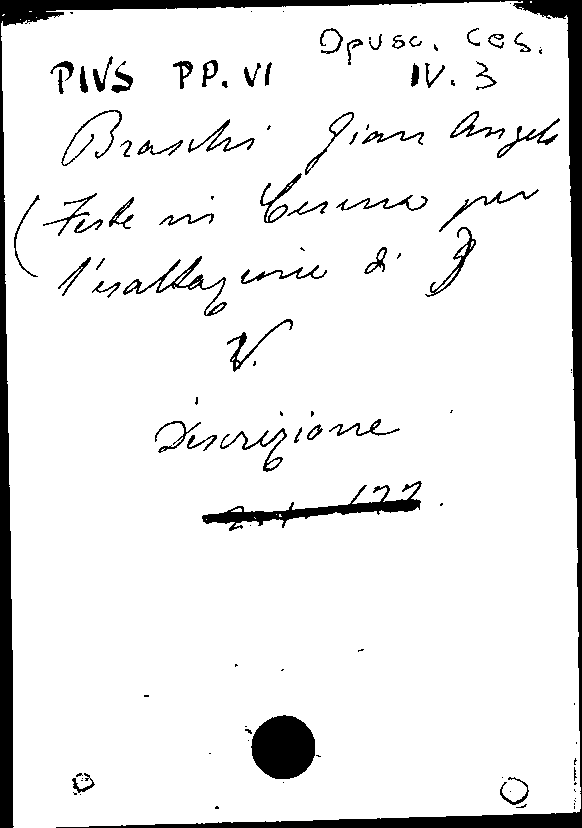 Opusc. Ces.
PIVS PP. VI IV. 3
Braschi Gian Angelo
(Feste in Cesena per
l'esaltazione di
V.
Descrizione